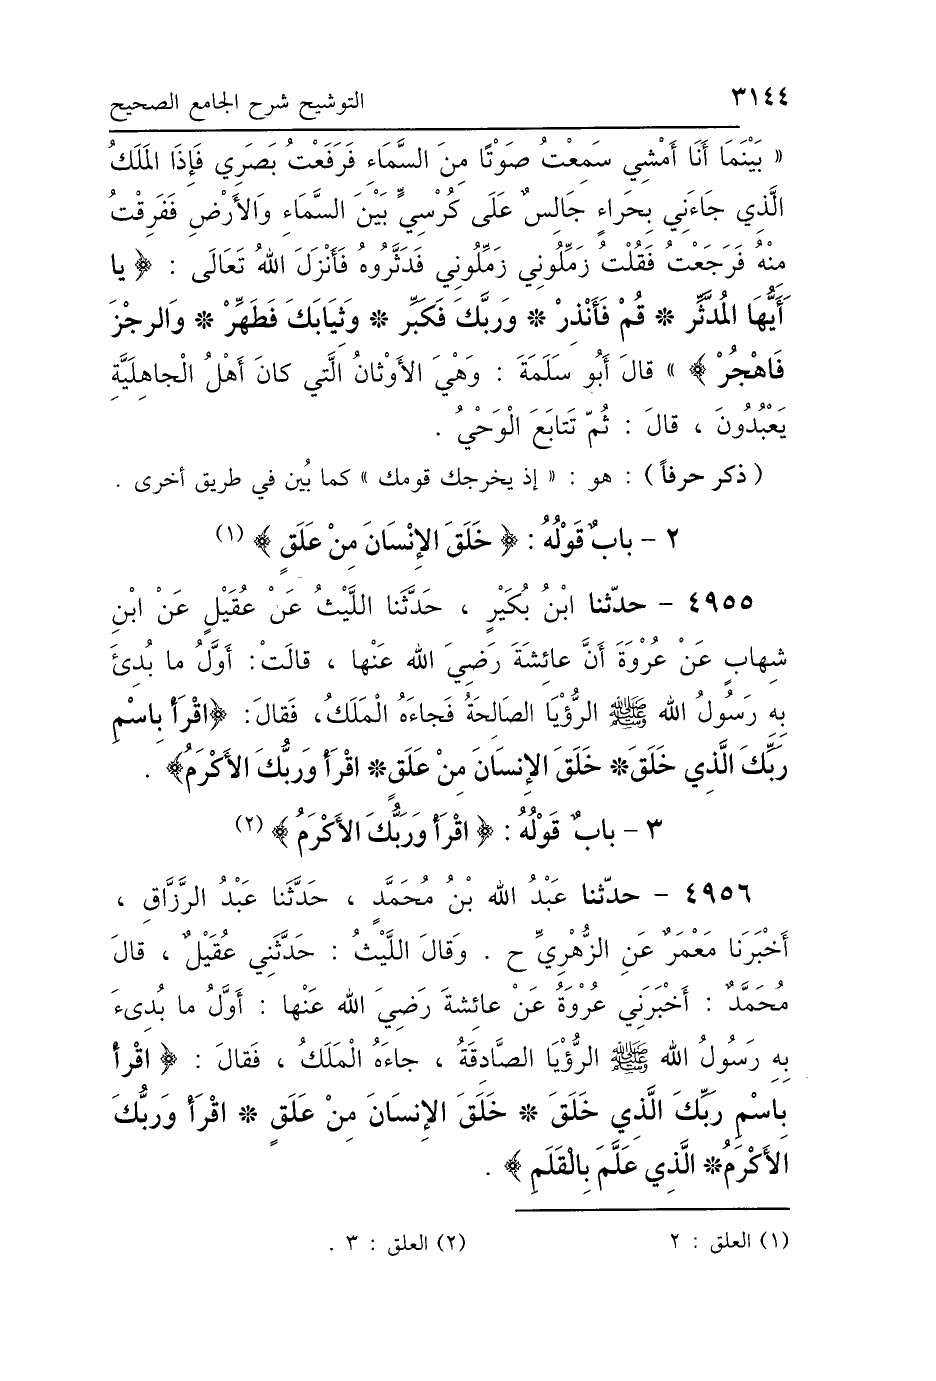 ٣١٤٤ التوشيح شرح الجامع الصحيح
« بَيْنَمَا أَنَا أَمْشِي سَمِعْتُ صَوْتًا مِنَ السَّمَاءِ فَرَفَعْتُ بَصَرِي فَإِذَا المَلَكُ
الَّذِي جَاءَنِي بِحِرَاءٍ جَالِسٌ عَلَى كُرْسِيٍّ بَيْنَ السَّمَاءِ وَالأَرْضِ فَفَرِقْتُ
مِنْهُ فَرَجَعْتُ فَقُلْتُ زَمِّلُونِي زَمِّلُونِي فَدَثَّرُوهُ فَأَنْزَلَ اللهُ تَعَالَى : ﴿ يا
أَيُّهَا المُدَّثِّر * قُمْ فَأَنْذِرْ * وَرَبَّكَ فَكَبِّر * وَثِيَابَكَ فَطَهِّرْ * وَالرِجْزَ
فَاهْجُرْ ﴾ » قالَ أَبُو سَلَمَةَ : وَهْيَ الأَوْثانُ الَّتِي كانَ أَهْلُ الْجاهِلِيَّةِ
يَعْبُدُونَ ، قالَ : ثُمّ تَتابَعَ الْوَحْيُ .
( ذكر حرفاً ) : هو : « إذ يخرجك قومك » كما بُين في طريق أخرى .
٢ - بابٌ قَوْلُهُ : ﴿ خَلَقَ الإِنْسَانَ مِنْ عَلَقٍ ﴾ (١)
٤٩٥٥ - حدّثنا ابْنُ بُكَيْرٍ ، حَدَّثَنا اللَّيْثُ عَنْ عُقَيْلٍ عَنْ ابْنِ
شِهابٍ عَنْ عُرْوَةَ أَنَّ عائِشَةَ رَضِيَ الله عَنْها ، قالَتْ: أَوَّلُ ما بُدِئَ
بِهِ رَسُولُ الله ﷺ الرُّؤْيَا الصَالِحَةُ فَجاءَهُ الْمَلَكُ، فَقالَ: ﴿اقْرَأْ بِاسْمِ
رَبِّكَ الَّذِي خَلَقَ* خَلَقَ الإِنسَانَ مِنْ عَلَقٍ* اقْرَأْ وَرَبُّكَ الأَكْرَمُ﴾ .
٣ - بابٌ قَوْلُهُ : ﴿ اقْرَأْ وَرَبُّكَ الأَكْرَمُ ﴾ (٢)
٤٩٥٦ - حدّثنا عَبْدُ الله بْنُ مُحَمَّدٍ ، حَدَّثَنا عَبْدُ الرَّزَّاقِ ،
أَخْبَرَنا مَعْمَرٌ عَنِ الزُّهْرِيِّ ح . وَقالَ اللَّيْثُ : حَدَّثَنِي عُقَيْلٌ ، قالَ
مُحَمَّدٌ : أَخْبَرَنِي عُرْوَةُ عَنْ عائِشةَ رَضِيَ الله عَنْها : أَوَّلُ ما بُدىءَ
بِهِ رَسُولُ الله ﷺ الرُّؤْيَا الصَّادِقَةُ ، جاءَهُ الْمَلَكُ ، فَقالَ : ﴿ اقْرأْ
بِاسْمِ رَبِّكَ الَّذِي خَلَقَ * خَلَقَ الإِنسَانَ مِنْ عَلَقٍ * اقْرَأْ وَرَبُّكَ
الأَكْرَمُ* الَّذِي عَلَّمَ بِالْقَلَمِ ﴾ .
(١) العلق : ٢ (٢) العلق : ٣ .